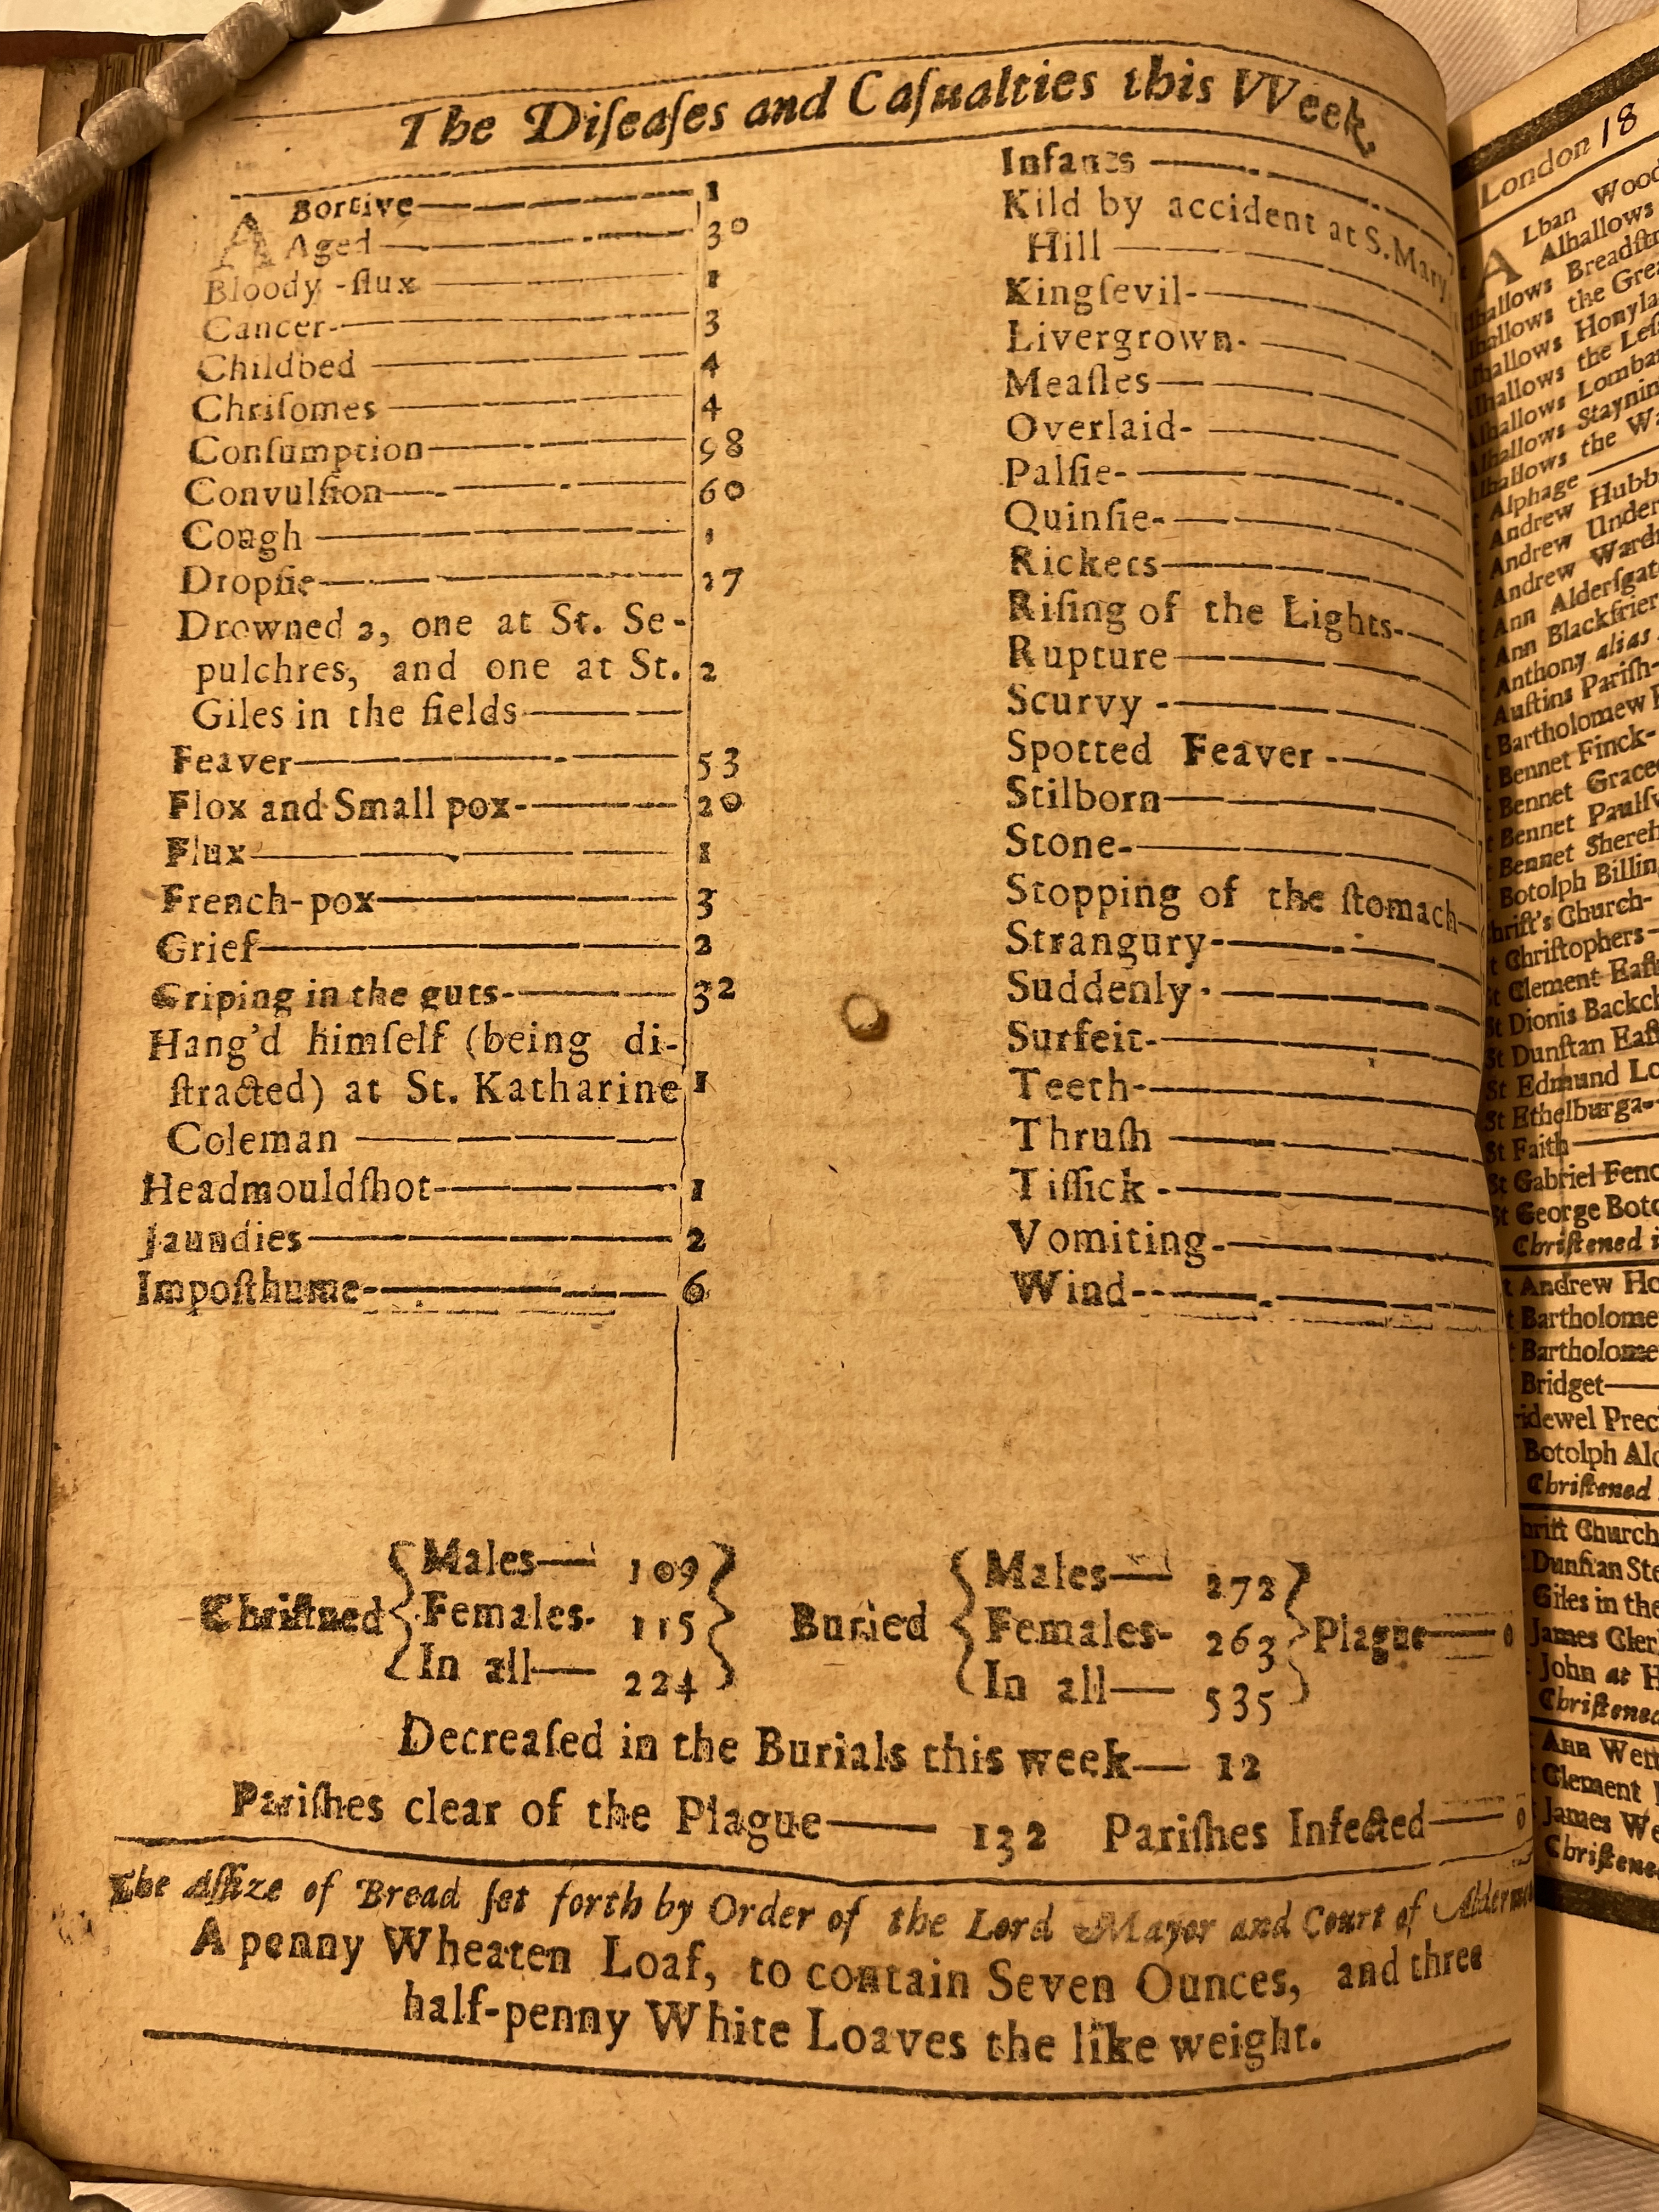 The Diſeaſes and Caſualties this VVeek.
ABortive 1
Aged 30
Bloody-flux 1
Cancer 3
Childbed 4
Chriſomes 4
Conſumption 98
Convulſion 60
Cough 1
Dropſie 17
Drowned 2, one at St. Se-
pulchres, and one at St. 2
Giles in the fields
Feaver 53
Flox and Small pox 20
Flux 1
French-pox 3
Grief 2
Griping in the guts 32
Hang'd himſelf (being di-
ſtracted) at St. Katharine 1
Coleman
Headmouldſhot 1
Jaundies 2
Impoſthume 6
Infants
Kild by accident at S. Mary
Hill
Kingſevil
Livergrown
Meaſles
Overlaid
Palſie
Quinſie
Rickets
Riſing of the Lights
Rupture
Scurvy
Spotted Feaver
Stilborn
Stone
Stopping of the ſtomach
Strangury
Suddenly
Surfeit
Teeth
Thruſh
Tiſſick
Vomiting
Wind
Chriſtned
Males 109
Females 115
In all 224
Buried
Males 272
Females 263
In all 535
Plague 0
Decreaſed in the Burials this week 12
Pariſhes clear of the Plague 132 Pariſhes Infected 0
The Aſſize of Bread ſet forth by Order of the Lord Mayor and Court of
A penny Wheaten Loaf, to contain Seven Ounces, and three
half-penny White Loaves the like weight.
London 18
ALban Wood
Alhallows
Breadſtr
the Gre
Honyla
the Leſ
Lombar
Staynin
the Wa
Alphage
Andrew Hubb
Andrew Under
Andrew Wardr
Ann Alderſgat
Ann Blackfrier
Anthony alias
Auſtins Pariſh
Bartholomew
Bennet Finck
Bennet Grace
Bennet Paulſ
Bennet Shereh
Botolph Billin
Church
Chriſtophers
St Clement Eaſt
St Dionis Backch
St Dunſtan Eaſt
St Edmund Lo
St Ethelburga
St Faith
St Gabriel Fenc
St George Boto
Chriſtened i
Andrew Ho
Bartholome
Bartholome
Bridget
Prec
Botolph Ald
Chriſtened
Church
Dunſtan Ste
Giles in the
James Cler
John at H
Chriſtened
Ann Weſt
Clement
James We